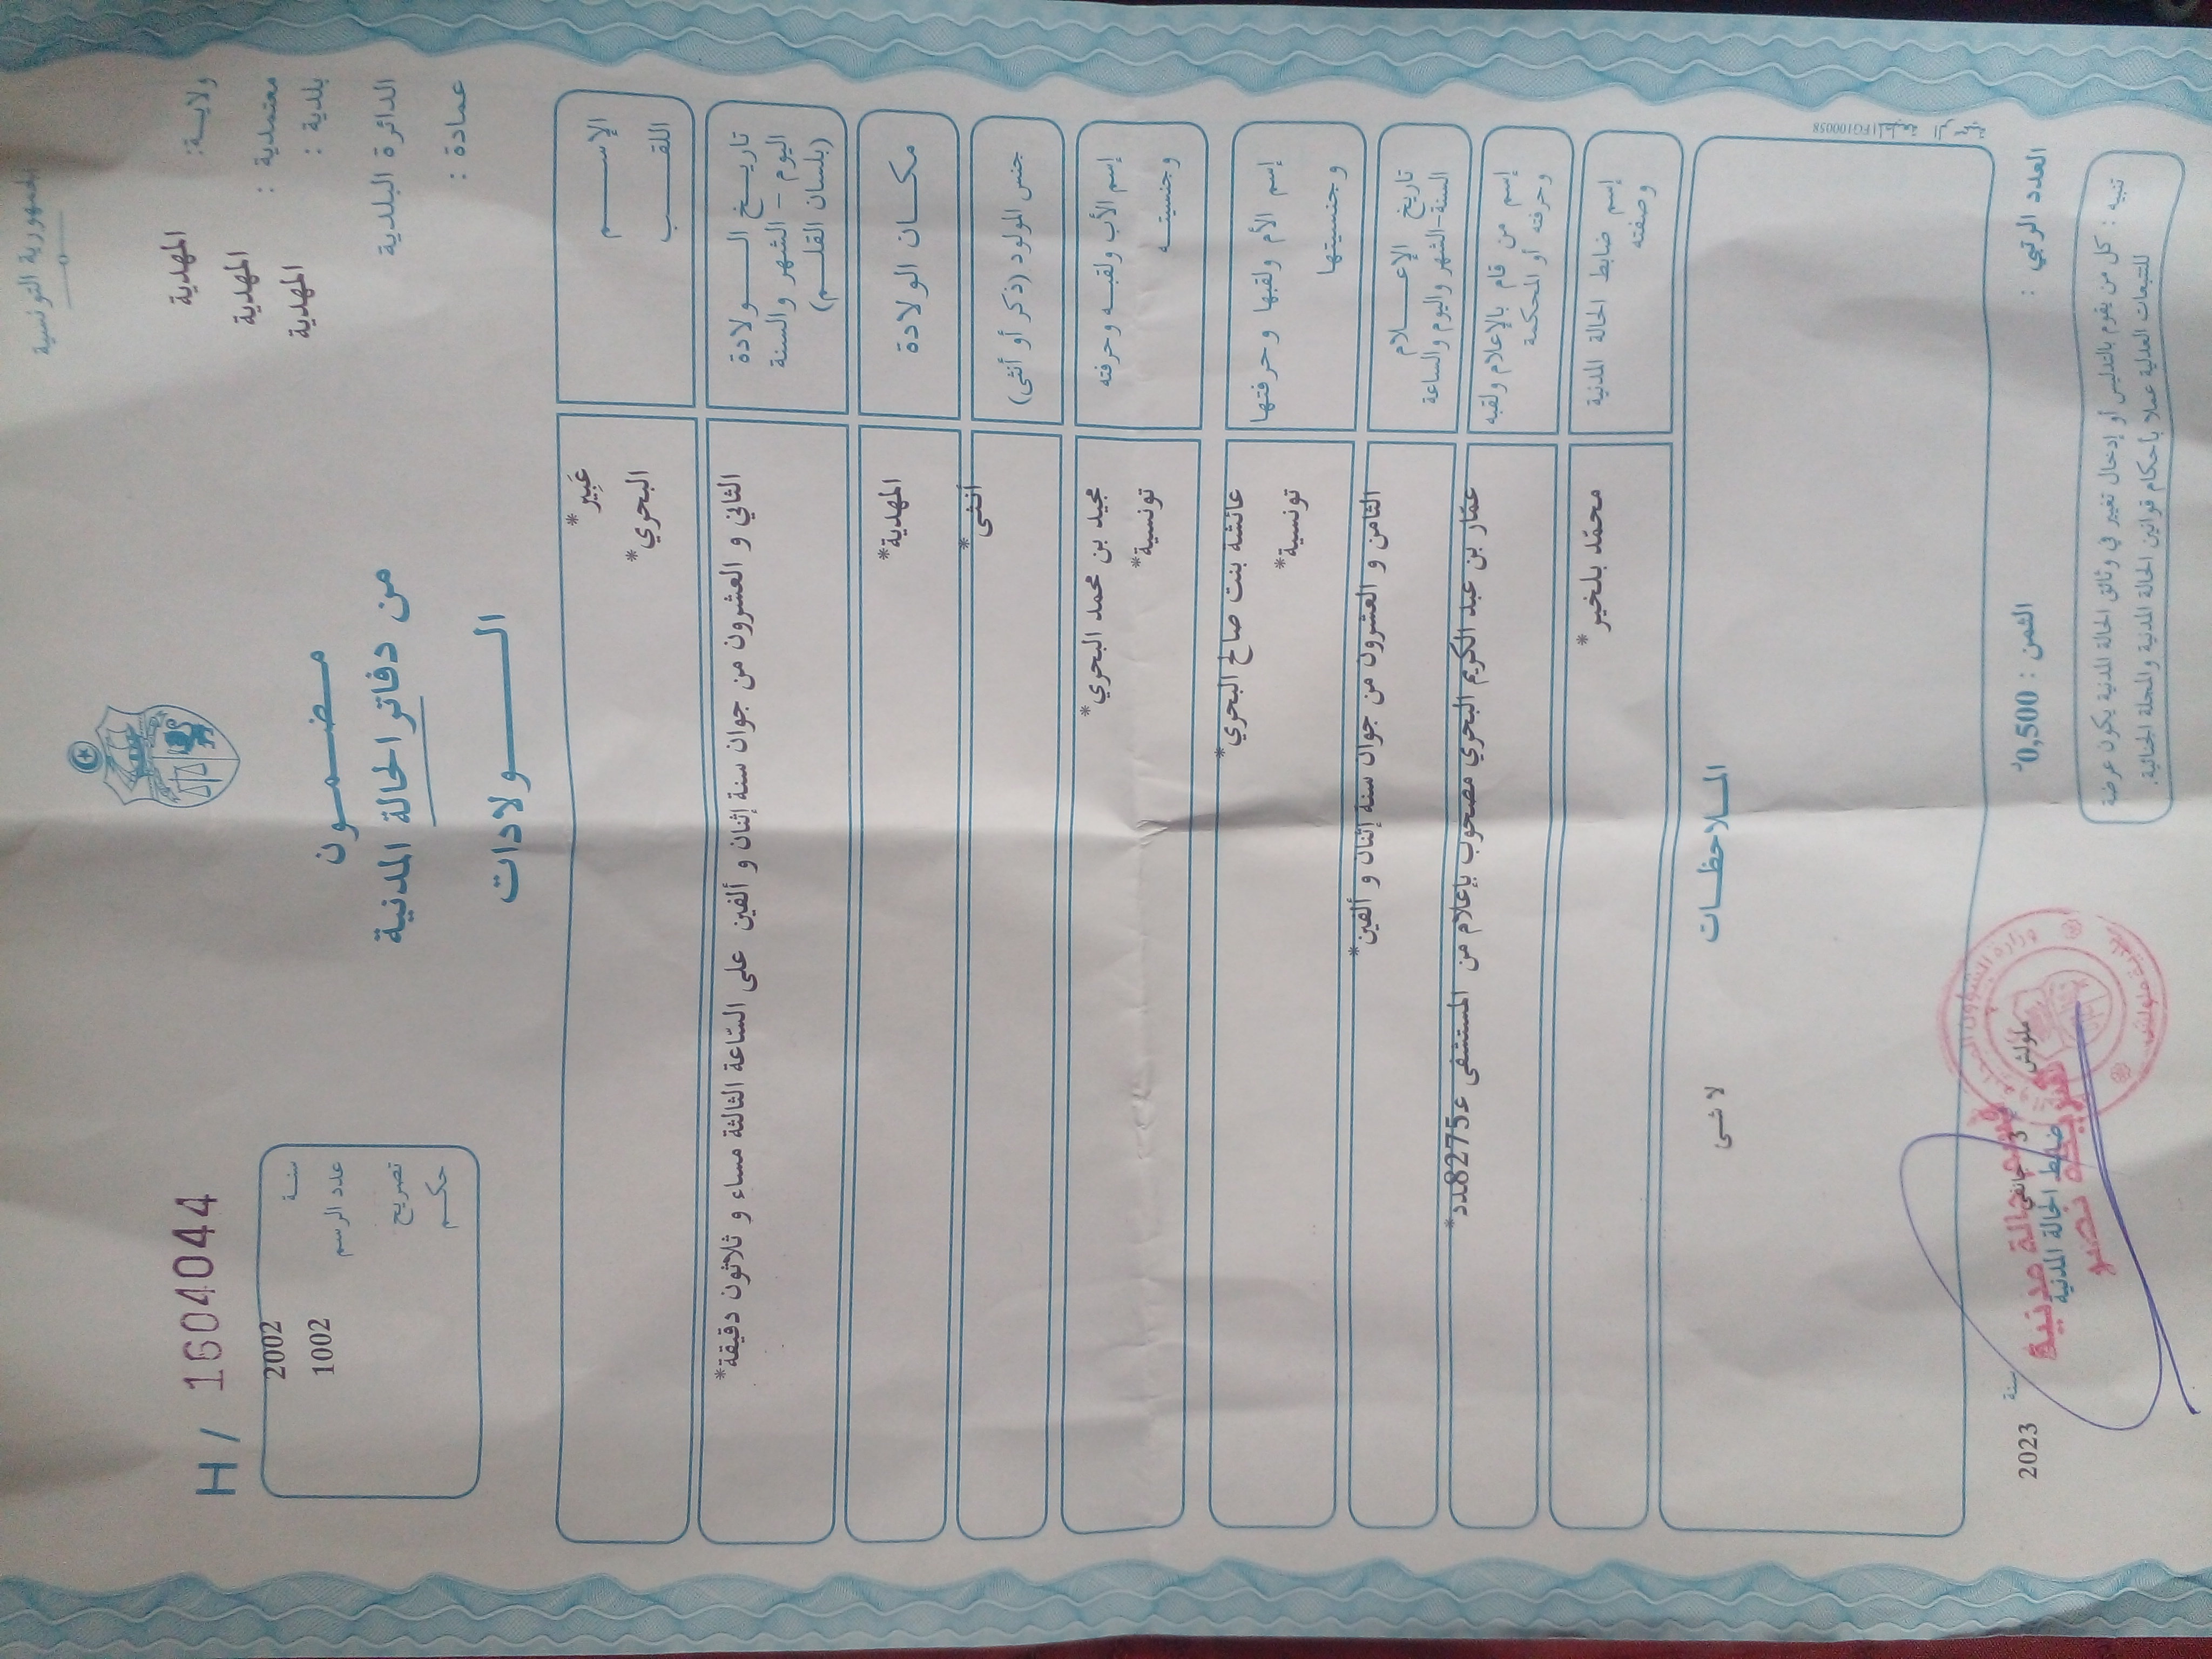 الجمهورية التونسية
ولايــة: المهدية
معتمدية : المهدية
بلدية : المهدية
الدائرة البلدية
عمادة :
H / 1604044
سنـة 2002
عدد الرسم 1002
تصريح
حكـم
مضـمـون
من دفاتر الحالة المدنية
الـولادات
الإسـم
عَبِير*
اللقـب
البحري*
تاريـخ الـولادة
اليوم – الشهر والسنة
(بلسان القلـم)
الثاني و العشرون من جوان سنة إثنان و ألفين على السّاعة الثالثة مساء و ثلاثون دقيقة*
مكـان الولادة
المهدية*
جنس المولود (ذكر أو أنثى)
أنثى*
إسم الأب ولقبـه وحرفته
وجنسيتـه
مجيد بن محمد البحري*
تونسية*
إسم الأم ولقبها وحرفتها
وجنسيتها
عائشة بنت صالح البحري*
تونسية*
تاريخ الإعـلام
السنة-الشهر واليوم والساعة
الثامن و العشرون من جوان سنة إثنان و ألفين*
إسم من قام بالإعلام ولقبه
وحرفته أو المحكمة
عمّار بن عبد الكريم البحري مصحوب بإعلام من المستشفى ع8275دد*
إسم ضابط الحالة المدنية
وصفته
محمّد بلخير*
المـلاحظـات
لا شى
FG100058
العدد الرتبي :
الثمن : 0,500د
ملولش 3 جانفي سنة 2023
ضابط الحالة المدنية
تنبيه : كل من يقوم بالتدليس أو إدخال تغيير في وثائق الحالة المدنية يكون عرضة
للتتبعات العدلية عملا بأحكام قوانين الحالة المدنية والمجلة الجنائية.